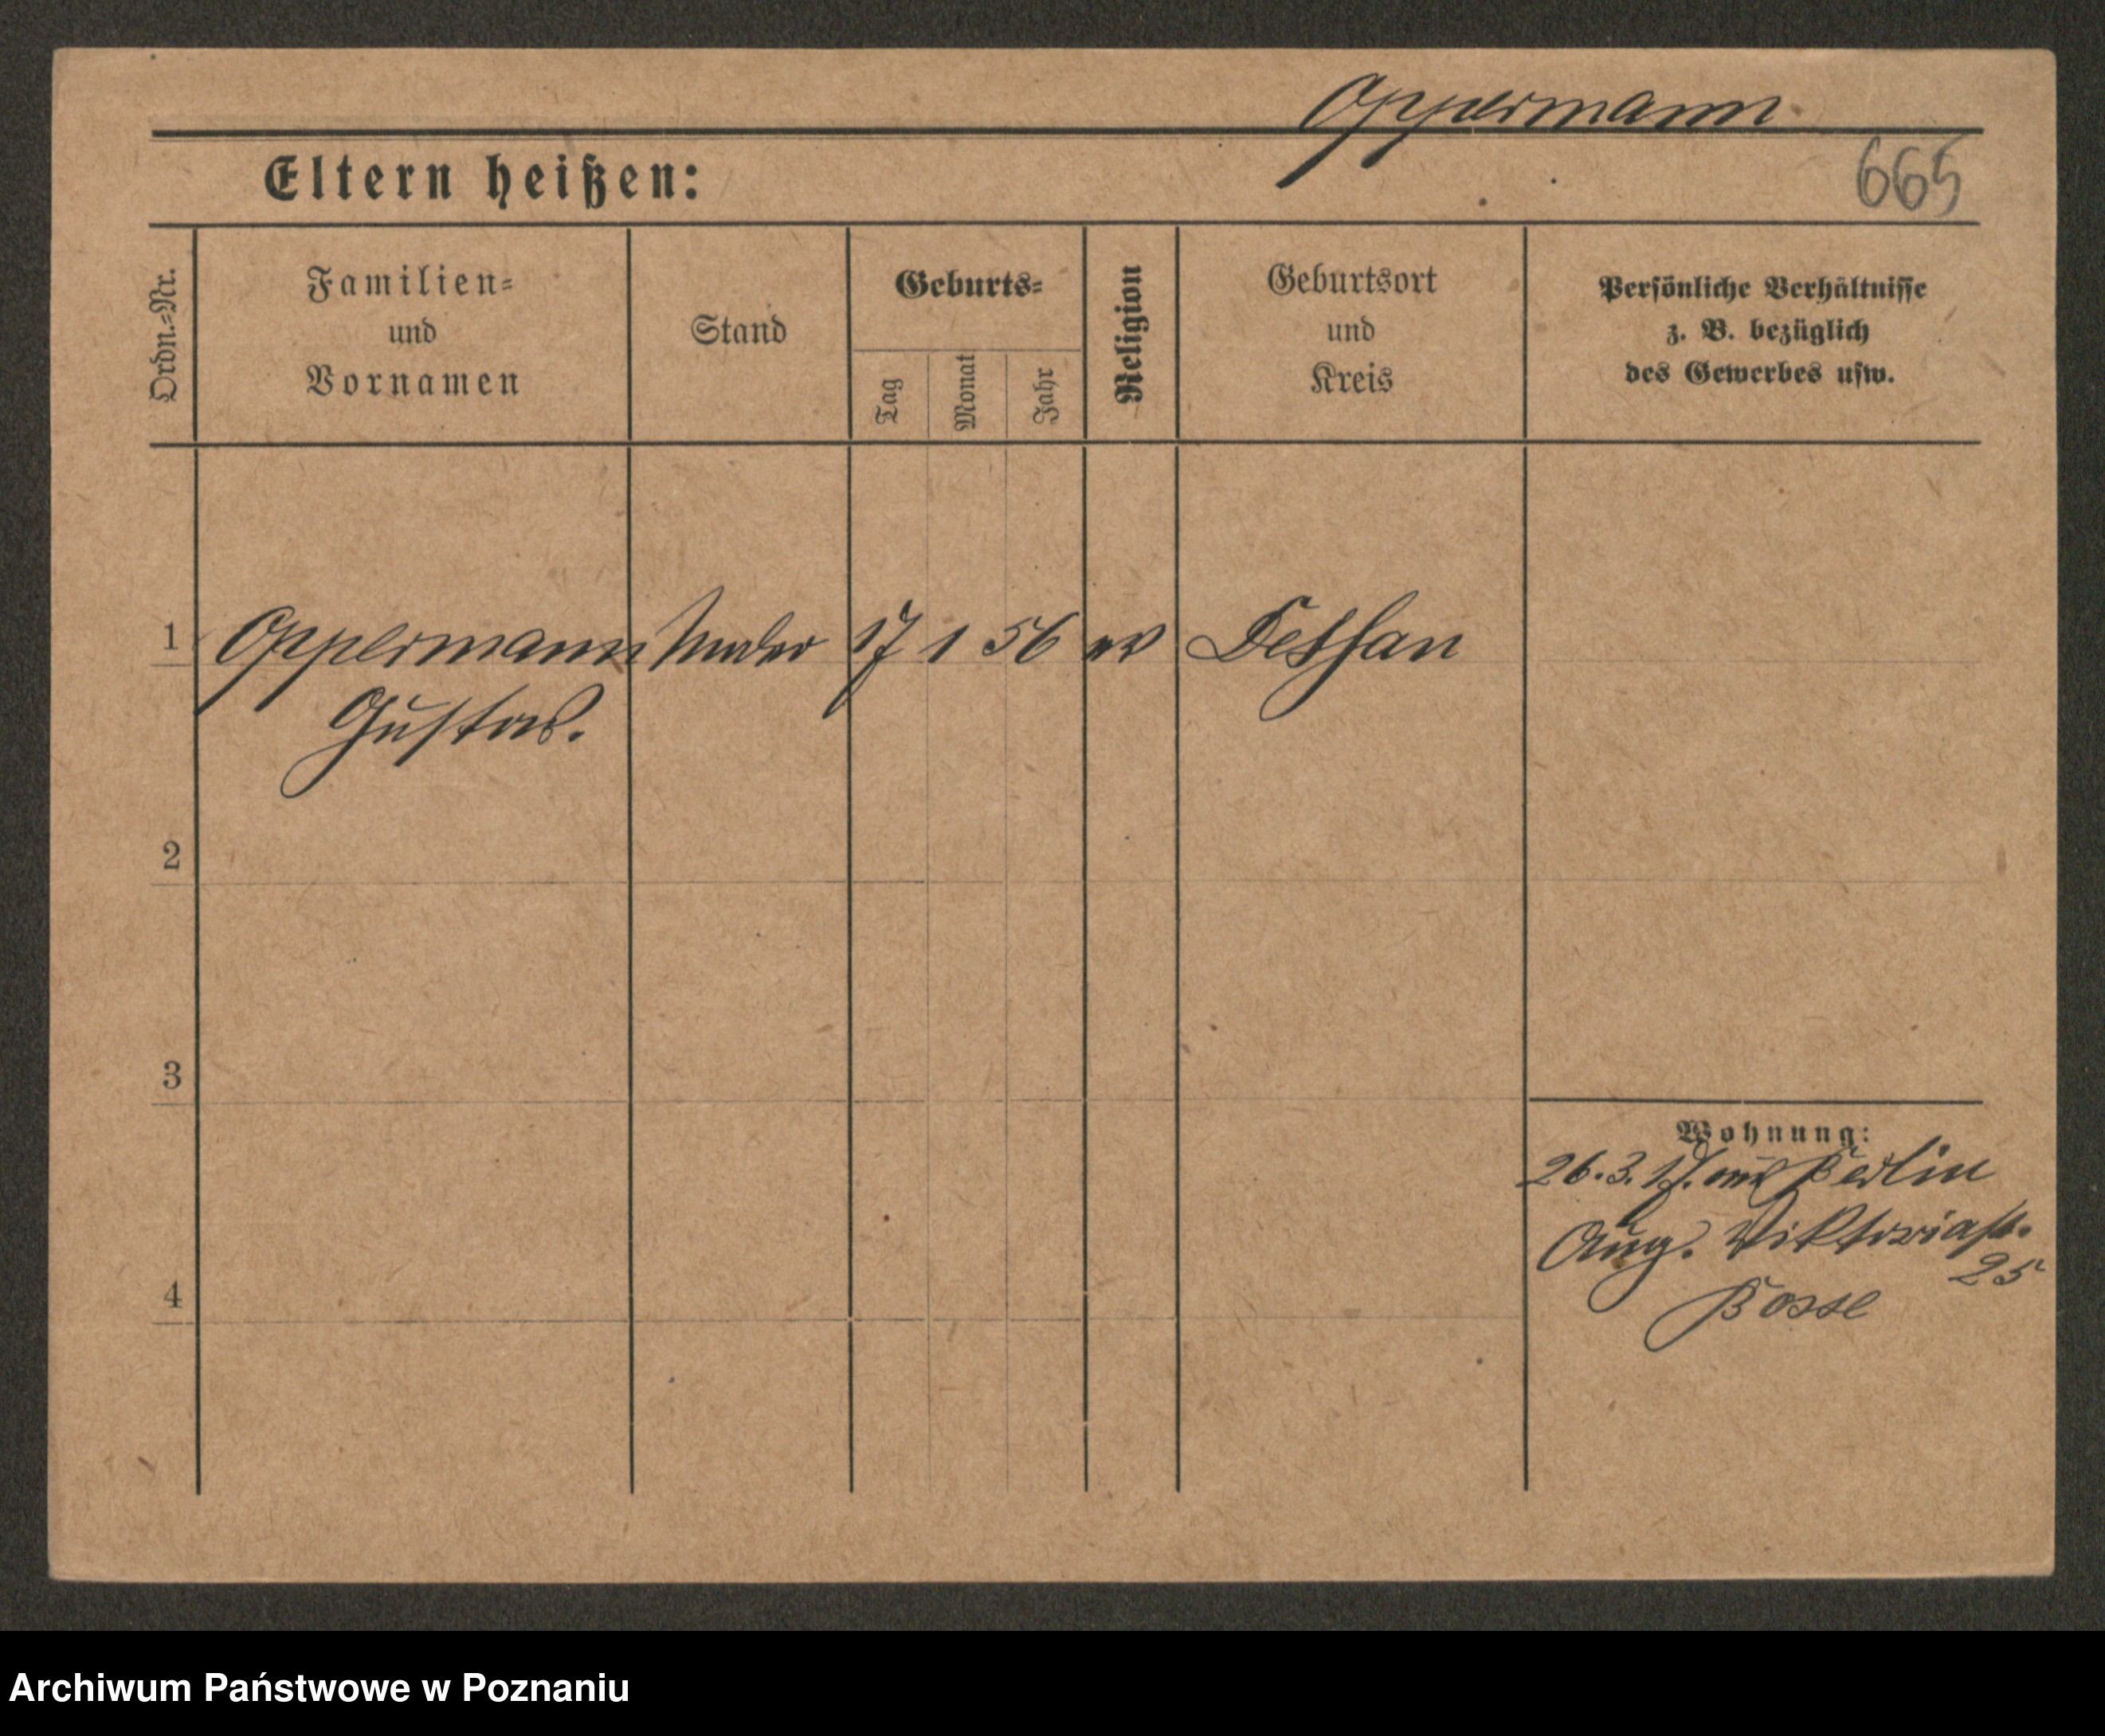 Oppermann
Eltern heißen:
665
Ordn.=Nr.
Familien=
und
Vornamen
Stand
Geburts=
Tag
Monat
Jahr
Religion
Geburtsort
und
Kreis
Persönliche Verhältnisse
z. B. bezüglich
des Gewerbes usw.
1 Oppermann 17 1 56 ev Dessau
Gustav.
2
3
4
Wohnung:
26. 3. 17. aus Berlin
Aug. Viktoriast.
25
Bosse
Archiwum Państwowe w Poznaniu